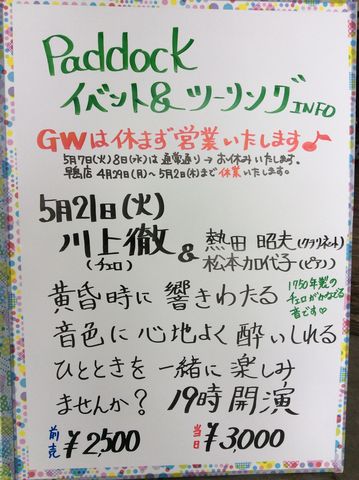 Paddock
イベント&ツーリングINFO
GWは休まず営業いたします♪
5月7日(火)8日(水)は通常通り→お休みいたします。
鴨店 4月29日(月)〜5月2日(木)まで休業いたします。
5月21日(火)
川上徹
(チェロ)
& 熱田 昭夫(クラリネット)
松本加代子(ピアノ)
黄昏時に響きわたる
1750年製の
チェロがかなでる
音です♡
音色に心地よく酔いしれる
ひとときを一緒に楽しみ
ませんか? 19時開演
前売 ¥2,500 当日 ¥3,000